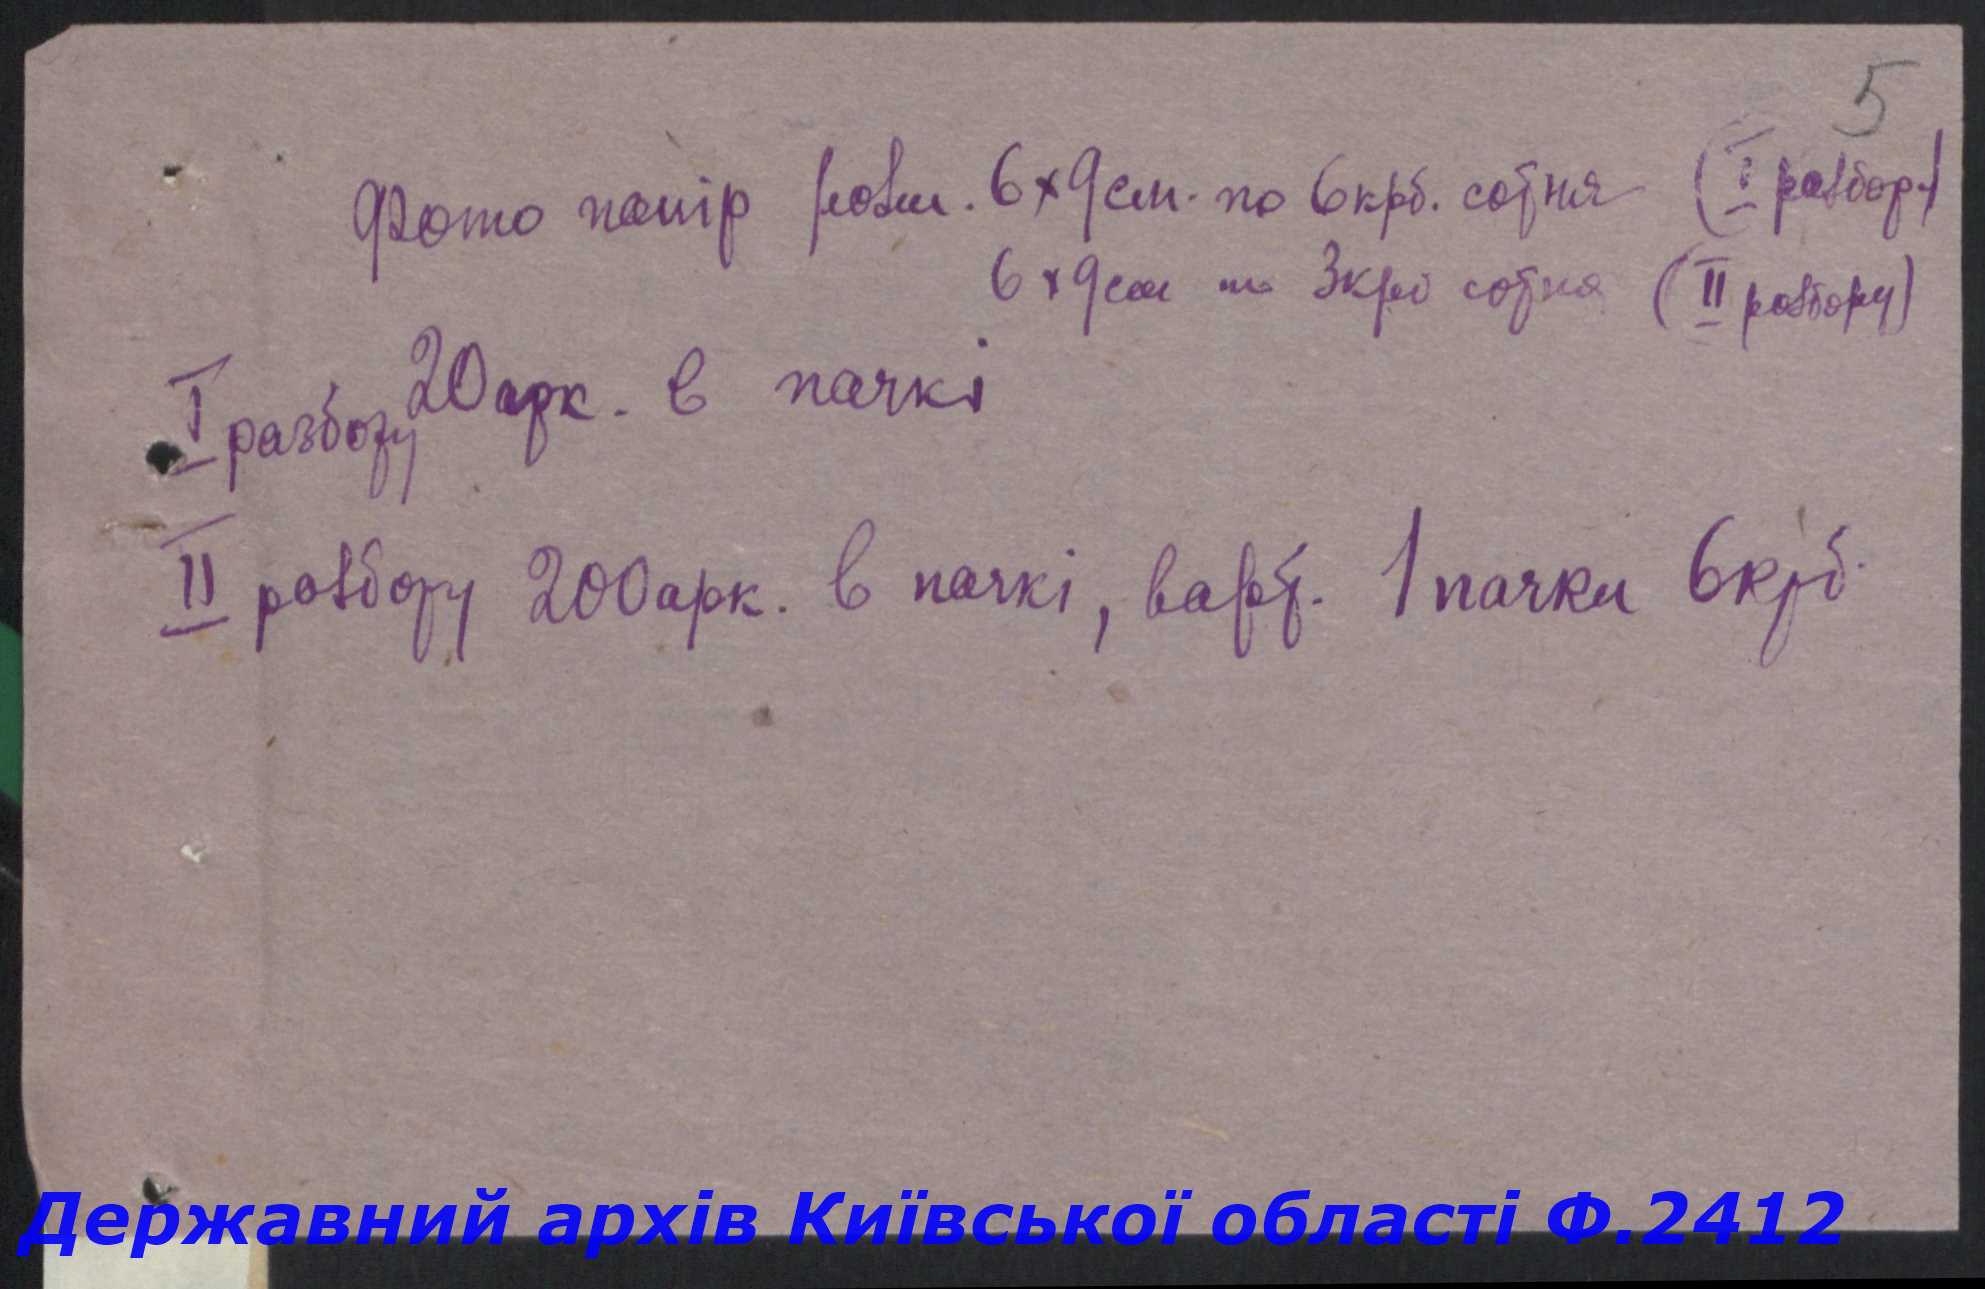 5
Фото папір розм. 6×9 см. по 6 крб. сотня (I разбору)
6×9 см по 3 крб сотня (II розбору)
I разбору 20 арк. в пачкі
II розбору 200 арк. в пачкі, варт. 1 пачки 6 крб.
Державний архів Київської області Ф.2412